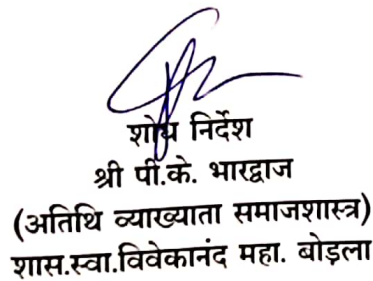 शोध निर्देश
श्री पी.के. भारद्वाज
(अतिथि व्याख्याता समाजशास्त्र)
शास.स्वा.विवेकानंद महा. बोड़ला